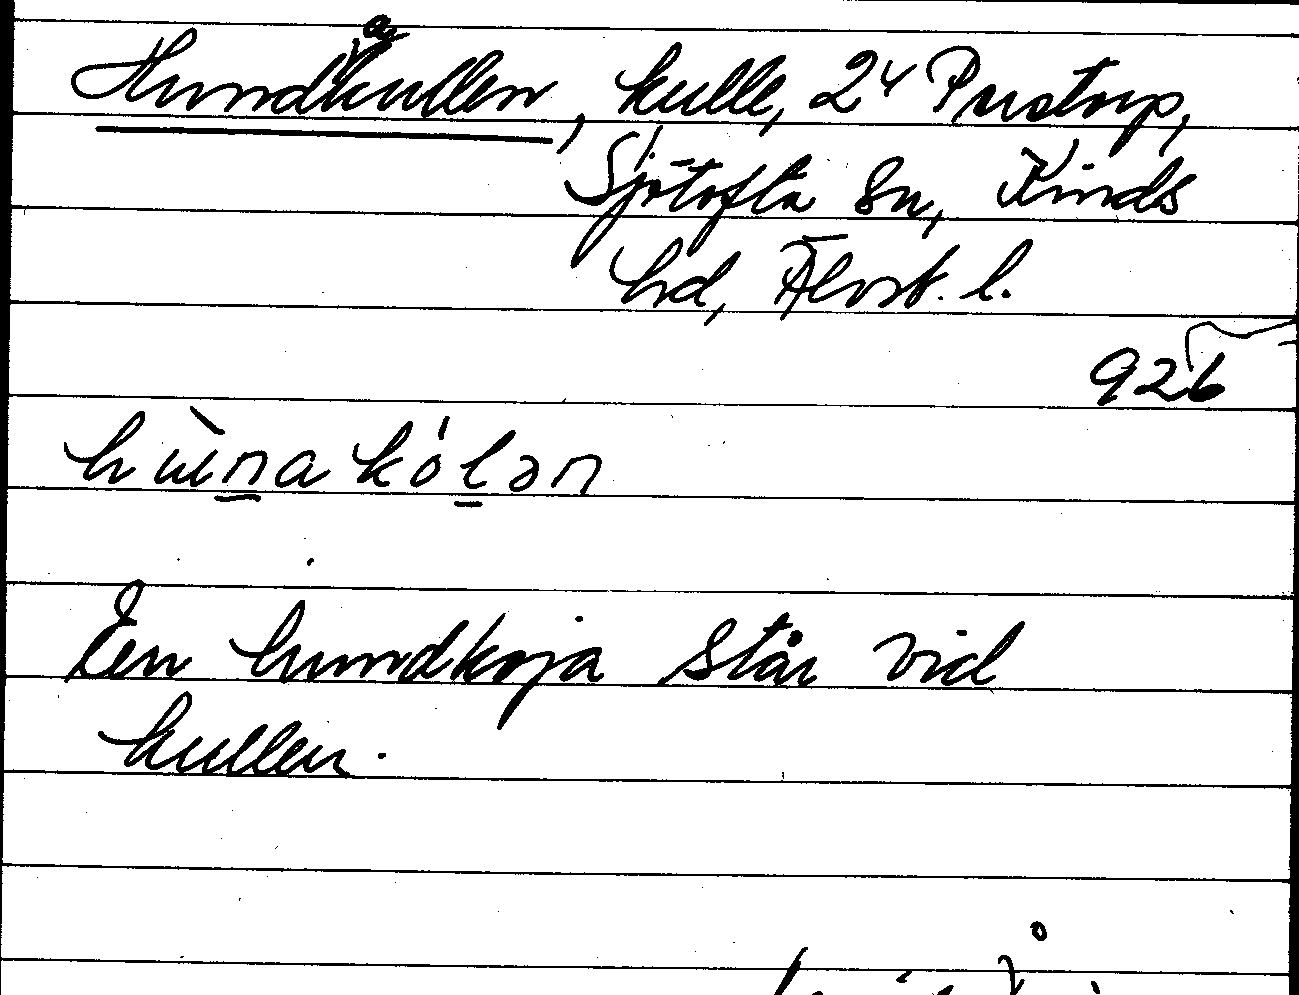 Hundakullen, kulle, 24 Prustorp,
Sjötofta sn, Kinds
hd, Älvsb. l.
926
hùnakólən
En hundkoja står vid
kullen.